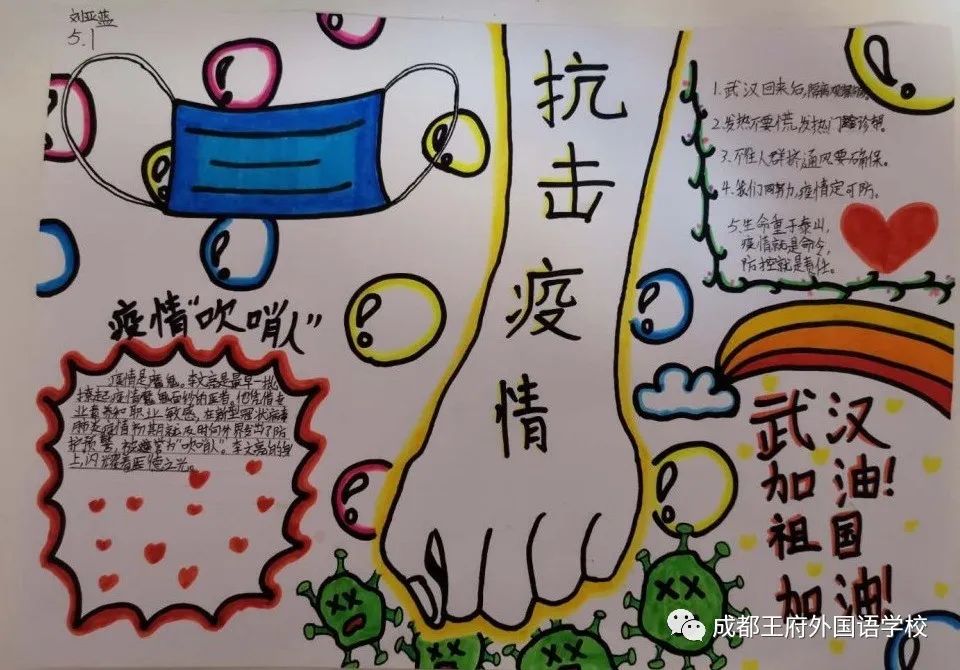 刘亚蓝
5.1
抗击疫情
1.武汉回来后,隔离观察
2.发热不要慌,发热门诊诊频。
3.不往人群挤通风要确保。
4.我们同努力,疫情定可防。
5.生命重于泰山,
疫情就是命令,
防控就是责任。
疫情“吹哨人”
疫情是魔鬼。李文亮是最早一批
撩起疫情魔鬼面纱的医者。他凭借专
业素养和职业敏感,在新型冠状病毒
肺炎疫情初期就及时向外界发出了防
护预警,被誉为“吹哨人”。李文亮的身
上,闪耀着医德之光。
武汉
加油!
祖国
加油!
成都王府外国语学校